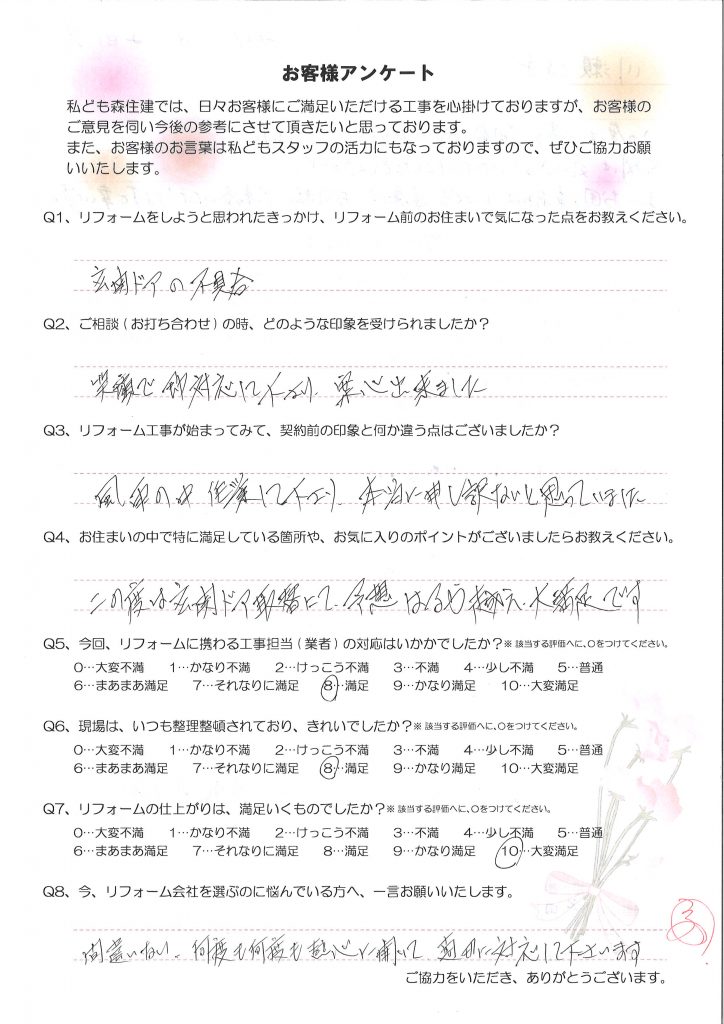 お客様アンケート
私ども森住建では、日々お客様にご満足いただける工事を心掛けておりますが、お客様の
ご意見を伺い今後の参考にさせて頂きたいと思っております。
また、お客様のお言葉は私どもスタッフの活力にもなっておりますので、ぜひご協力お願
いいたします。
Q1、リフォームをしようと思われたきっかけ、リフォーム前のお住まいで気になった点をお教えください。
玄関ドアの不具合
Q2、ご相談(お打ち合わせ)の時、どのような印象を受けられましたか?
即対応して下さり、安心出来ました
Q3、リフォーム工事が始まってみて、契約前の印象と何か違う点はございましたか?
風雨の中 作業して下さり、本当に申し訳ないと思っていました
Q4、お住まいの中で特に満足している箇所や、お気に入りのポイントがございましたらお教えください。
この度は玄関ドア取替にて、予想はるか越え、大満足です
Q5、今回、リフォームに携わる工事担当(業者)の対応はいかかでしたか?※該当する評価へ、○をつけてください。
0…大変不満 1…かなり不満 2…けっこう不満 3…不満 4…少し不満 5…普通
6…まあまあ満足 7…それなりに満足 8…満足 9…かなり満足 10…大変満足
Q6、現場は、いつも整理整頓されており、きれいでしたか?※該当する評価へに、○をつけてください。
0…大変不満 1…かなり不満 2…けっこう不満 3…不満 4…少し不満 5…普通
6…まあまあ満足 7…それなりに満足 8…満足 9…かなり満足 10…大変満足
Q7、リフォームの仕上がりは、満足いくものでしたか?※該当する評価へに、○をつけてください。
0…大変不満 1…かなり不満 2…けっこう不満 3…不満 4…少し不満 5…普通
6…まあまあ満足 7…それなりに満足 8…満足 9…かなり満足 10…大変満足
Q8、今、リフォーム会社を選ぶのに悩んでいる方へ、一言お願いいたします。
間違いない、何度も何度も熱心に聞いて 適切に対応して下さいます
ご協力をいただき、ありがとうございます。